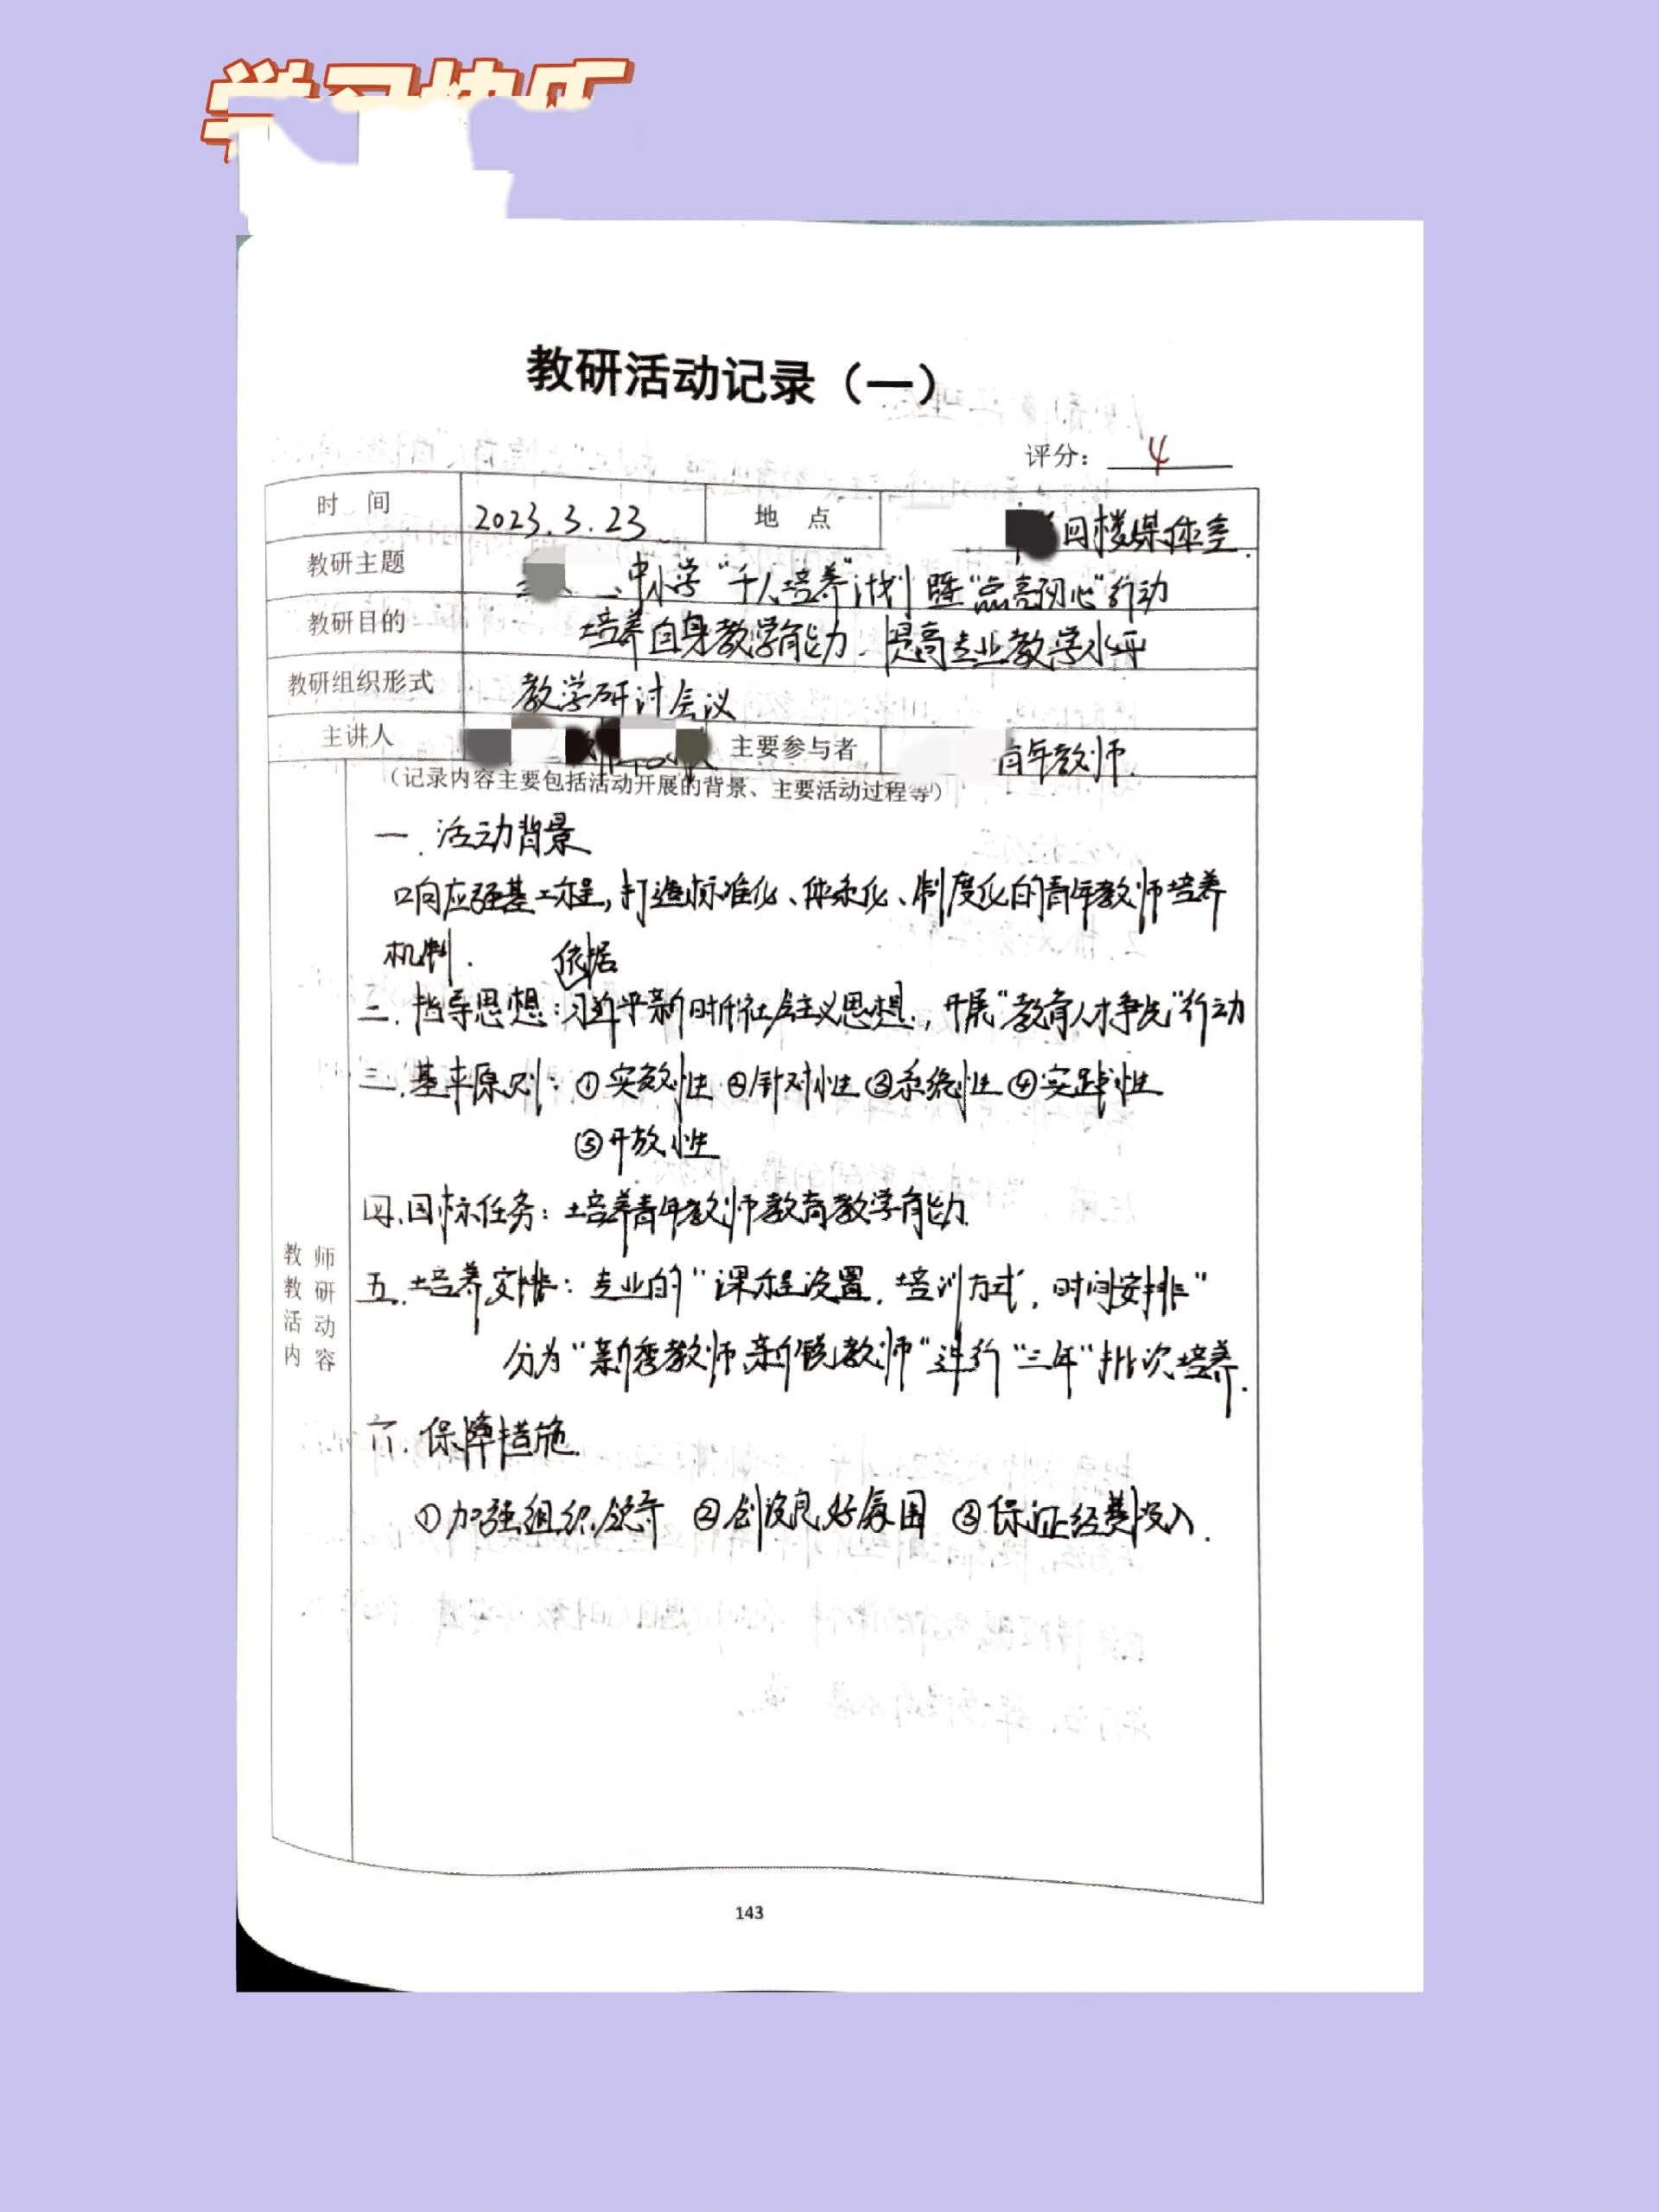 学习快乐
教研活动记录（一）
评分：4
时 间 2023.3.23 地 点 四楼媒体室.
教研主题 中小学“千人培养”计划暨“点亮初心”行动
教研目的 培养自身教学能力、提高专业教学水平
教研组织形式 教学研讨会议
主讲人 主要参与者 青年教师.
（记录内容主要包括活动开展的背景、主要活动过程等）
一.活动背景
响应强基工程,打造标准化、体系化、制度化的青年教师培养
机制. 依据
二.指导思想:习近平新时代社会主义思想.,开展“教育人才争先”行动
三.基本原则:①实效性 ②针对性 ③系统性 ④实践性
⑤开放性
四.目标任务:培养青年教师教育教学能力.
五.培养安排:专业的“课程设置,培训方式,时间安排”
分为“新秀教师、新锐教师”进行“三年”批次培养.
六.保障措施.
①加强组织领导 ②创设良好氛围 ③保证经费投入.
教师教研活动内容
143